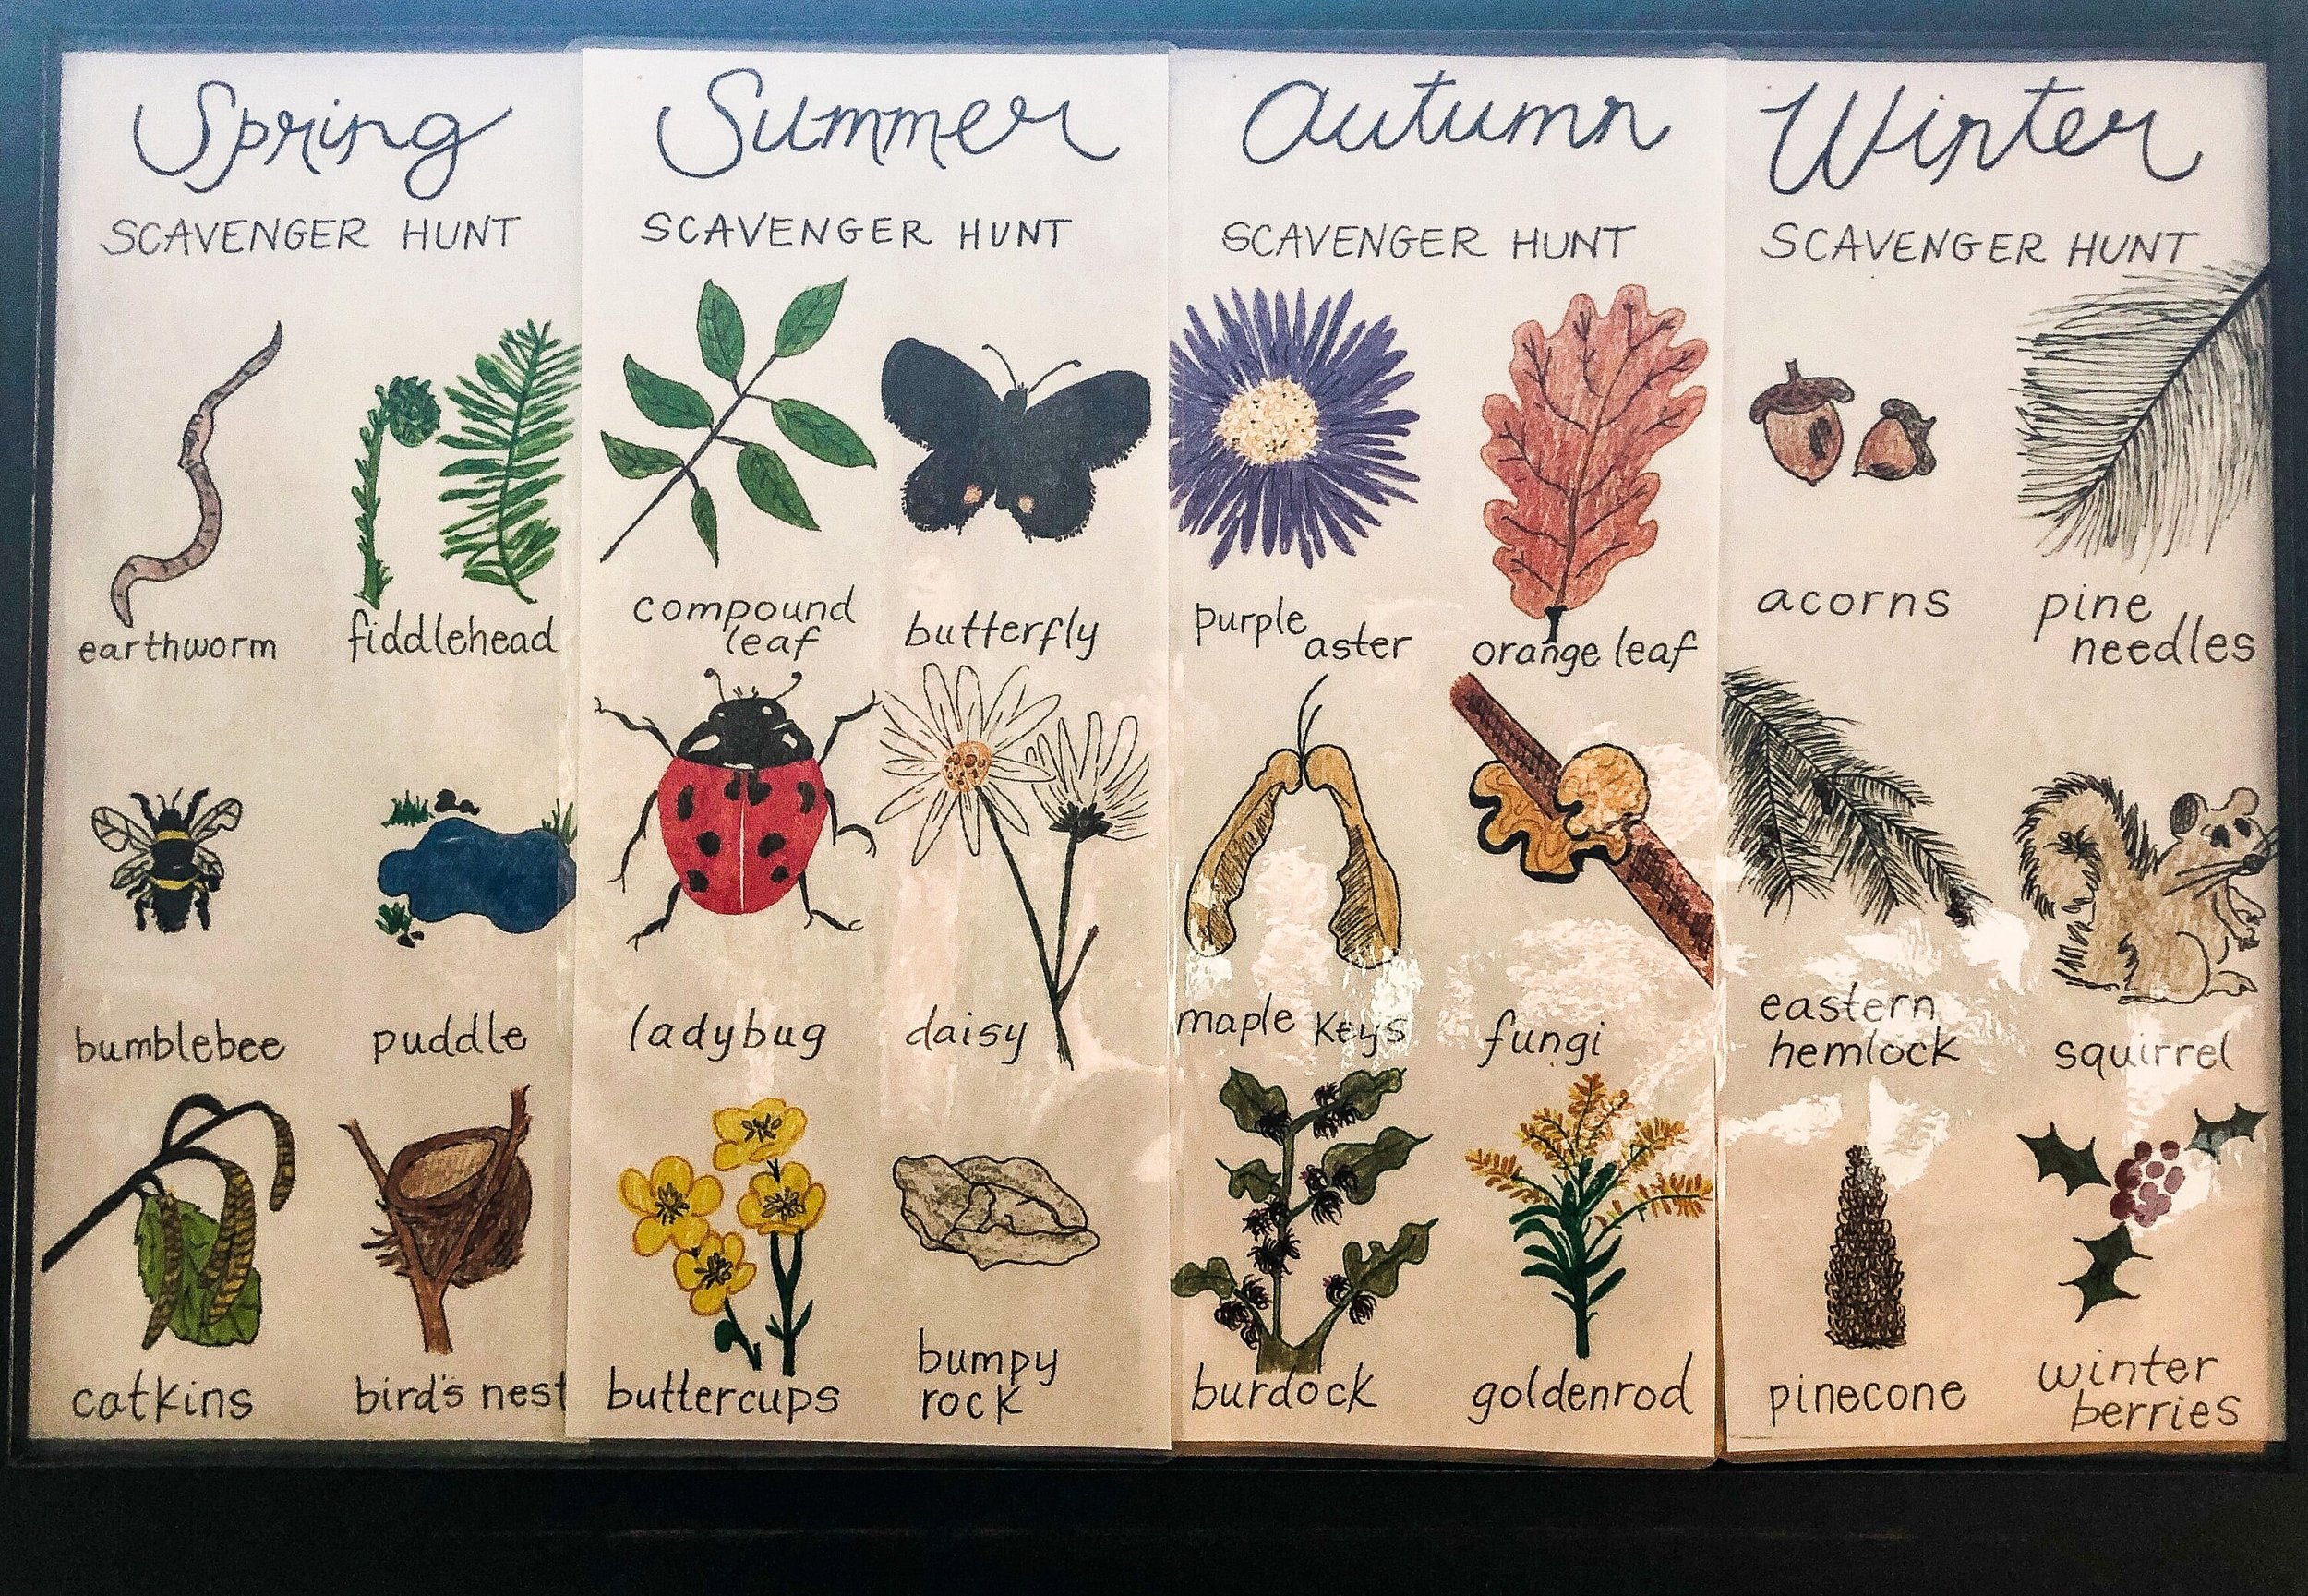 Spring
SCAVENGER HUNT
earthworm
fiddlehead
bumblebee
puddle
catkins
bird's nest
Summer
SCAVENGER HUNT
compound
leaf
butterfly
ladybug
daisy
buttercups
bumpy
rock
Autumn
SCAVENGER HUNT
purple
aster
orange leaf
maple keys
fungi
burdock
goldenrod
Winter
SCAVENGER HUNT
acorns
pine
needles
eastern
hemlock
squirrel
pinecone
winter
berries